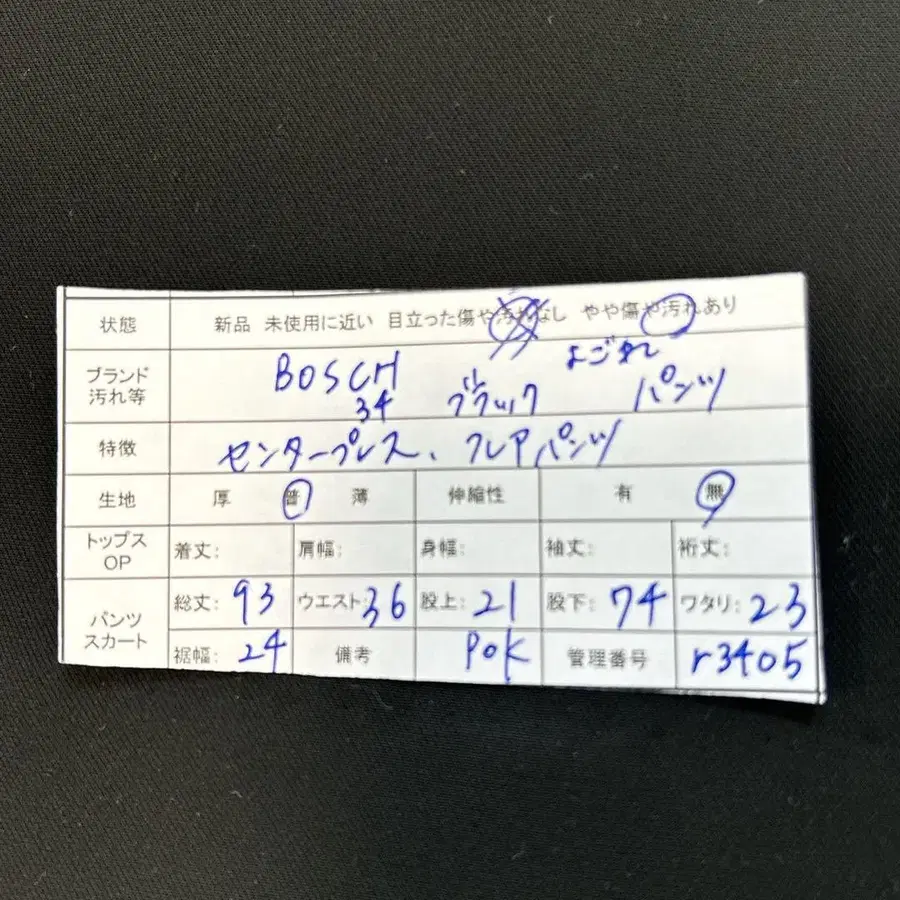 状態 新品 未使用に近い 目立った傷や汚れなし やや傷や汚れあり
よごれ
ブランド 汚れ等 BOSCH 34 ブラック パンツ
特徴 センタープレス、フレアパンツ
生地 厚 普 薄 伸縮性 有 無
トップス OP 着丈: 肩幅: 身幅: 袖丈: 裄丈:
パンツ スカート 総丈: 93 ウエスト: 36 股上: 21 股下: 74 ワタリ: 23
裾幅: 24 備考 POK 管理番号 r3405